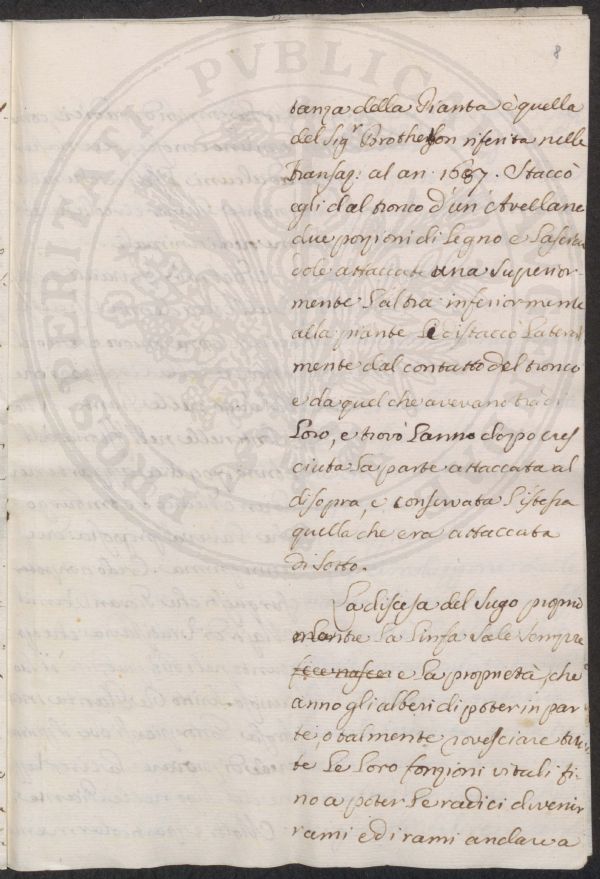 8
tanza della Pianta è quella
del Sigr Brothelson riferita nelle
Transaz: al an. 1687. Staccò
egli dal tronco d'un'Avellane
due porzioni di Legno e Lascia
dole attaccate una superior-
mente L'altra inferiormente
alla piante Le distaccò Lateral
mente dal contatto del tronco
e da quel che avevano trà di
Loro, e trovò L'anno dopo cres
ciuta La parte attaccata al
disopra, e conservata L'istessa
quella che era attaccata
di sotto.
La discesa del Sugo proprio
mentre La Linfa sale sempre
fece nascer e La proprietà che
anno gli alberi di poter in par
te, o talmente rovesciare tut
te Le Loro fonzioni vitali fi-
no a poter Le radici divenir
rami ed i rami andare a
PROSPERITATI PVBLICAE